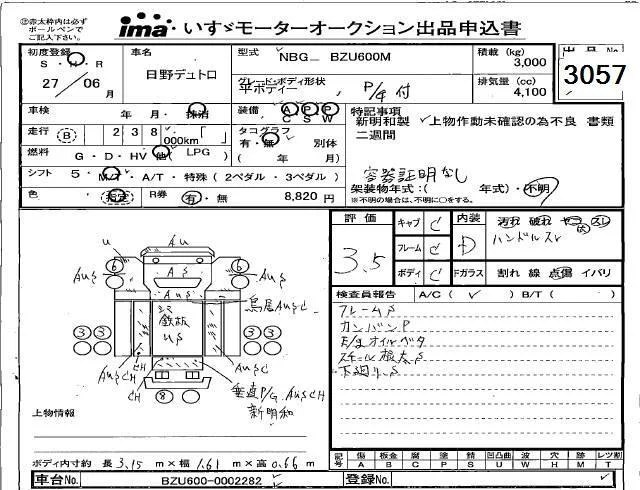 ㊟赤太枠内は必ず
ボールペンで
ご記入下さい。
ima いすゞモーターオークション出品申込書
初度登録
S・H・R
27 06 月
車名
日野デュトロ
型式
NBG- BZU600M
グレード・ボディ形状
平ボディー P/G 付
積載 (kg)
3,000
排気量 (cc)
4,100
出品No
3057
車検 年 月・抹消
走行 (B) 2 3 8 000km
燃料 G・D・HV 他( LPG )
シフト 5・M/T・A/T・特殊(2ペダル・3ペダル)
色 指定
R券 有・無 8,820 円
装備
A/C P/S P/W
タコグラフ
有・無 別体
( 年 月)
特記事項
新明和製 上物作動未確認の為不良 書類
二週間
容器証明なし
架装物年式:( 年式)・不明
※不明の場合は、不明に○をする。
評価
3.5
キャブ C
フレーム C
ボディ C
内装 D
Fガラス
汚れ 破れ ヤコゲ スレ
ハンドルスレ
割れ 線 点傷 イバリ
検査員報告 A/C( ✓ ) B/T( )
フレームS
カンバンP
E/gオイルベタ
スチール根太S
下廻りS
u
Au
6 6
AuS AS AuS
AuS
鳥居AuSC
ミミ
鉄板
uS
3 3 3 3
CH
AuSCH
CH
8
垂直P/G AuSCH
新明和
上物情報
ボディ内寸約 長 3.15 m×幅 1.61 m×高 0.66 m
記号 傷 板金 腐 塗 錆 凹凸曲 波 穴 跡 レツ割
A B C P S U W H M T
車台No. BZU600-0002282 登録No.